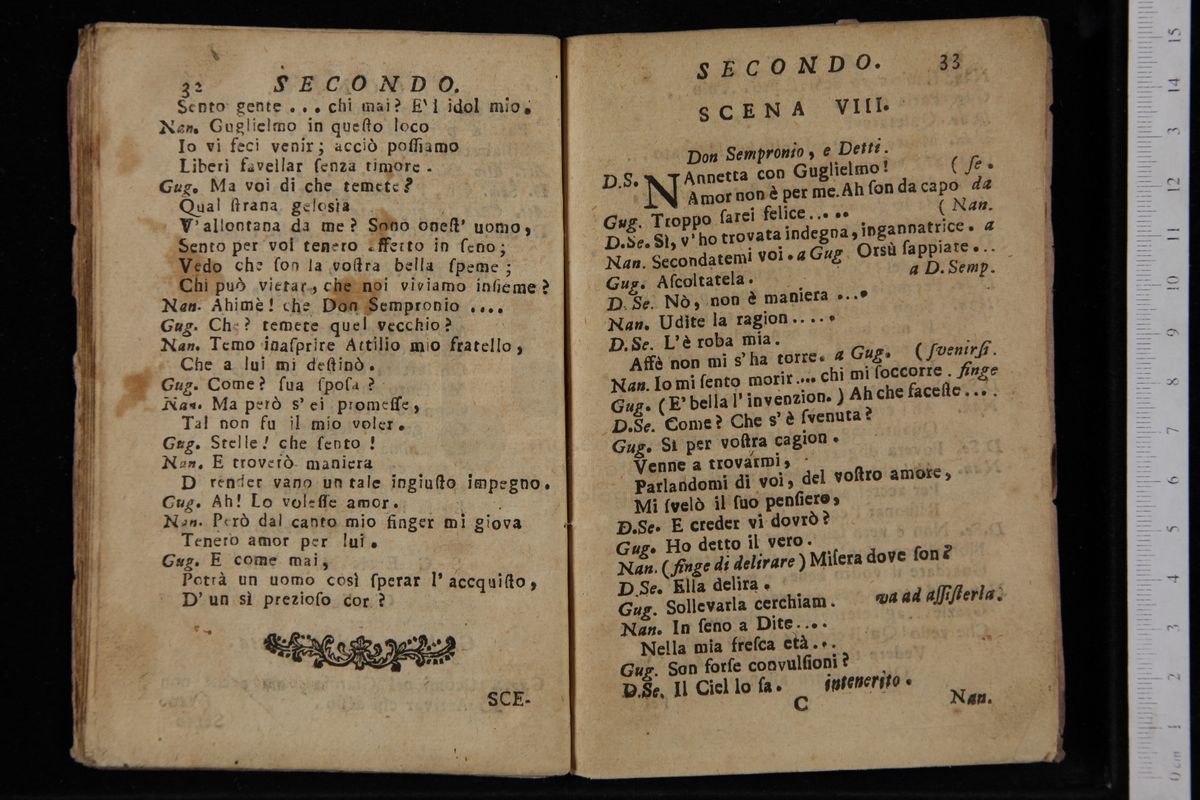 32 SECONDO.
Sento gente ... chi mai? E'l idol mio.
Nan. Guglielmo in queſto loco
Io vi feci venir; acciò poſſiamo
Liberi favellar ſenza timore.
Gug. Ma voi di che temete?
Qual ſtrana gelosia
V'allontana da me? Sono oneſt' uomo,
Sento per voi tenero affetto in ſeno;
Vedo che ſon la voſtra bella ſpeme;
Chi può vietar, che noi viviamo inſieme?
Nan. Ahimè! che Don Sempronio ....
Gug. Che? temete quel vecchio?
Nan. Temo inaſprire Attilio mio fratello,
Che a lui mi deſtinò.
Gug. Come? ſua ſpoſa?
Nan. Ma però s' ei promeſſe,
Tal non fu il mio voler.
Gug. Stelle! che ſento!
Nan. E troverò maniera
D render vano un tale ingiuſto impegno.
Gug. Ah! Lo voleſſe amor.
Nan. Però dal canto mio finger mi giova
Tenero amor per lui.
Gug. E come mai,
Potrà un uomo così ſperar l' accquiſto,
D' un sì prezioſo cor?
SCE-
SECONDO. 33
SCENA VIII.
Don Sempronio, e Detti.
D.S. NAnnetta con Guglielmo! (ſe.
Amor non è per me. Ah ſon da capo da
Gug. Troppo ſarei felice.. .. (Nan.
D.Se. Sì, v'ho trovata indegna, ingannatrice. a
Nan. Secondatemi voi. a Gug Orsù ſappiate...
Gug. Aſcoltatela. a D. Semp.
D. Se. Nò, non è maniera ...
Nan. Udite la ragion.....
D.Se. L'è roba mia.
Affè non mi s'ha torre. a Gug. (ſvenirſi.
Nan. Io mi ſento morir.... chi mi ſoccorre. finge
Gug. (E' bella l' invenzion.) Ah che faceſte....
D.Se. Come? Che s'è ſvenuta?
Gug. Sì per voſtra cagion.
Venne a trovarmi,
Parlandomi di voi, del voſtro amore,
Mi ſvelò il ſuo penſiero,
D.Se. E creder vi dovrò?
Gug. Ho detto il vero.
Nan. (finge di delirare) Miſera dove ſon?
D.Se. Ella delira.
Gug. Sollevarla cerchiam. va ad aſſiſterla.
Nan. In ſeno a Dite....
Nella mia freſca età...
Gug. Son forſe convulſioni?
D.Se. Il Ciel lo ſa. intenerito.
C Nan.